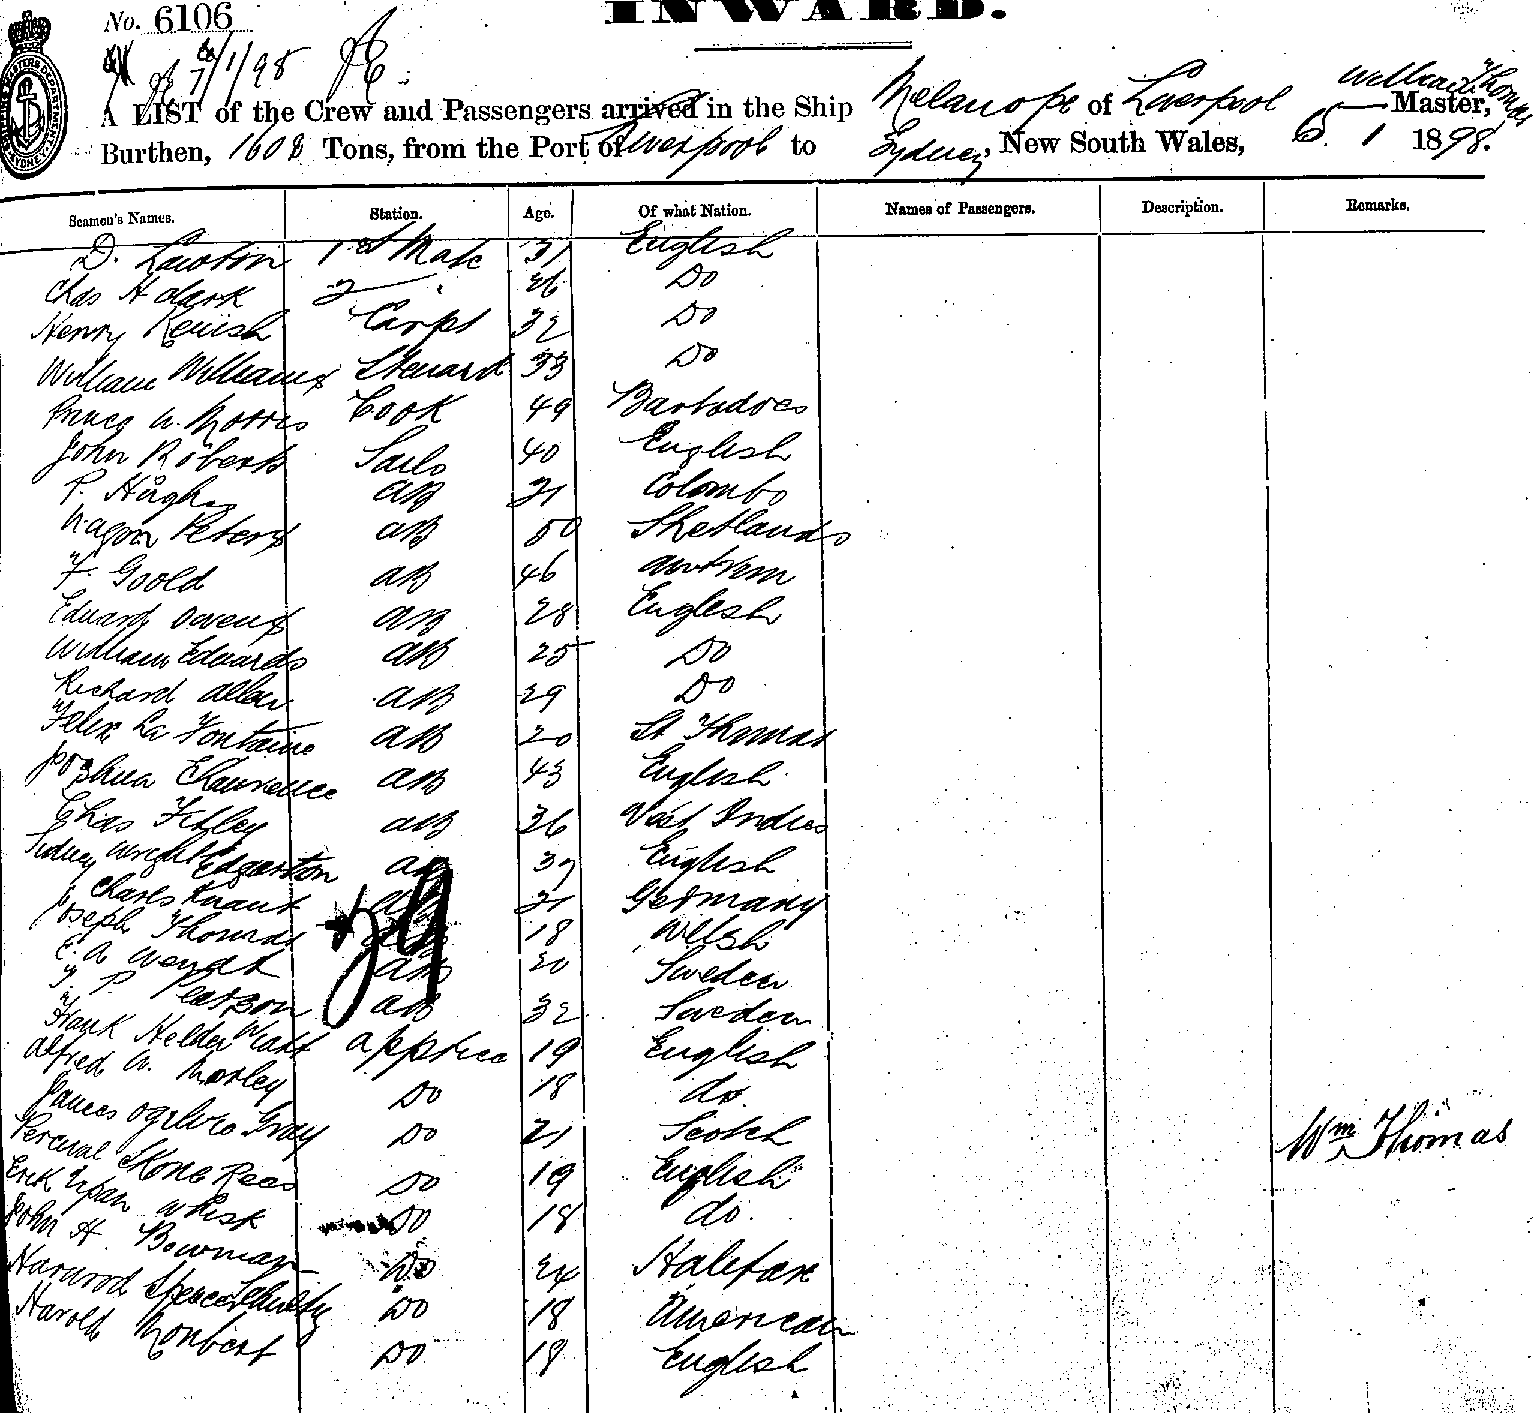 INWARD.
No. 6106
7/1/98
A LIST of the Crew and Passengers arrived in the Ship Melanope of Liverpool William Thomas Master,
Burthen, 1608 Tons, from the Port of Liverpool to Sydney, New South Wales, 6 1 1898.
Seamen's Names. Station. Age. Of what Nation. Names of Passengers. Description. Remarks.
D. Lawton 1st Mate 31 English
Chas H Clark 2 " 26 Do
Henry Carpt 32 Do
William Williams Steward 33 Do
W. Morris Cook 49 Barbadoes
John Roberts Sails 40 English
P. Hugh AB 21 Colombo
Peters AB 50 Shetlands
F. Goold AB 46 Antrim
Eduard Owens AB 28 English
William Edwards AB 25 Do
Richard Allen AB 29 Do
Felix La Fontaine AB 20 St Thomas
Joshua Lawrence AB 43 English
Chas AB 36 West Indies
Sidney Wright Edgerton AB English
Charles Knaut AB 21 Germany
Joseph Thomas AB 18 Welsh
E. A Wendt AB 20 Sweden
P Pearson AB 32 Sweden
Frank Helder Watt Apptice 19 English
Alfred W. Morley Do 18 do.
James Ogilvie Gray Do 21 Scotch
Wm Thomas
Percival Stone Rees Do 19 English
Erik Whisk Do 18 do.
John H. Bowman Do 24 Halifax
Harwood Spencer Do 18 American
Harold Do 18 English